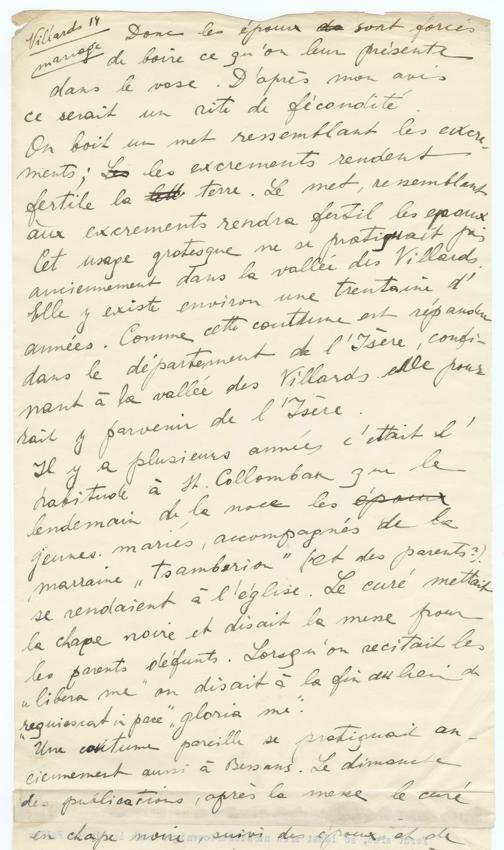 Villards 14
mariage
Donc les époux do sont forcés
de boire ce qu'on leur présente
dans le vase. D'après mon avis
ce serait un rite de fécondité.
On boit un met ressemblant les excre-
ments; Les les excrements rendent
fertile la terre. Le met, ressemblant
aux excrements rendra fertil les epoux
Cet usage grotesque ne se pratiquait pas
anciennement dans la vallée des Villards.
Elle y existe environ une trentaine d'
années. Comme cette coutume est répandue
dans le département de l'Isère, confi-
nant à la vallée des Villards elle pour
rait y parvenir de l'Isère.
Il y a plusieurs années c'était l'
habitude à St. Collomban que le
lendemain de la noce les époux
jeunes mariés, accompagnés de la
marraine „tsamberion" (et des parents?)
se rendaient à l'église. Le curé mettait
la chape noire et disait la messe pour
les parents défunts. Lorsqu'on recitait les
„libera me" on disait à la fin au lieu du
„requiescat in pace" „gloria me".
Une coutume pareille se pratiquait an-
ciennement aussi à Bessans. Le dimanche
des publications, après la messe le curé
en chape noire suivi des époux et de